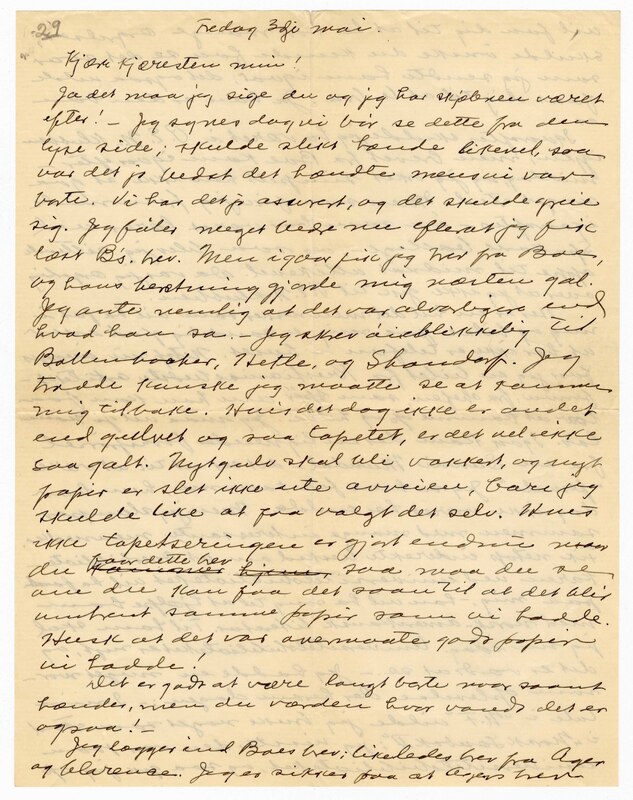 29
Fredag 3dje mai.
Kjære kjæresten min!
Ja det maa jeg sige du og jeg har skjæbnen været
efter! – Jeg synes dog vi bör se dette fra den
lyse side; skulde slikt hænde likevel, saa
var det jo bedst det hændte mens vi var
borte. Vi har det jo assurert, og det skulde greie
sig. Jeg föler meget bedre nu efterat jeg fik
læst B's. brev. Men igaar fik jeg brev fra Boe,
og hans beretning gjorde mig næsten gal.
Jeg ante nemlig at det var alvorligere end
hvad han sa. – Jeg skrev öieblikkelig til
Bollenbacher, Helle, og Skandorf. Jeg
trodde kanske jeg maatte se at komme
mig tilbake. Hvis det dog ikke er andet
end gulvet og saa tapetet, er det vel ikke
saa galt. Nyt gulv skal bli vakkert, og nyt
papir er slet ikke ute av veien, bare jeg
skulde like at faa valgt det selv. Hvis
ikke tapetseringen er gjort endnu naar
du faar dette brev kommer hjem, saa maa du se
om du kan faa det saan til at det blir
omtrent samme papir som vi hadde.
Husk at det var overmaate godt papir
vi hadde!
Det er godt at være langt borte naar saant
hænder, men du verden hvor vondt det er
ogsaa! –
Jeg lægger ind Boes brev; likeledes brev fra Ager
og Clarence. Jeg er sikker paa at Agers brev